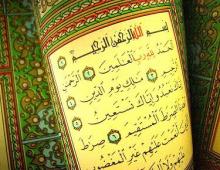 بسم الله الرحمن الرحيم
الحمد لله رب العلمين الرحمن
الرحيم ملك يوم الدين
إياك نعبد وإياك نستعين
اهدنا الصرط المستقيم صرط
الذين أنعمت عليهم غير المغضوب
ولا